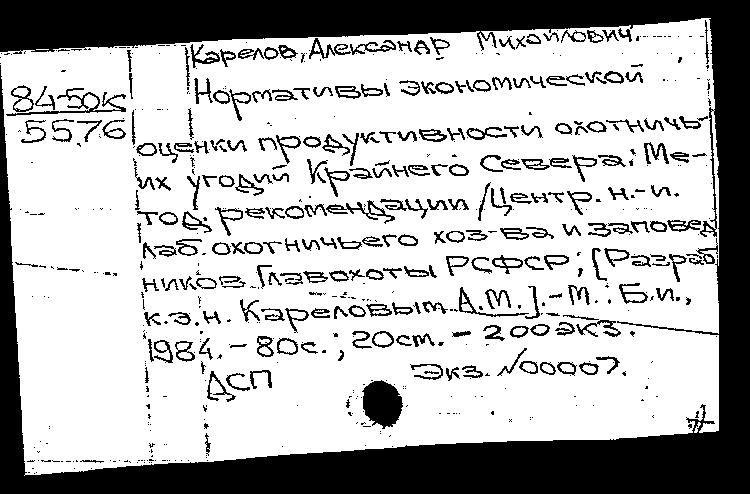 Карелов, Александр Михайлович.
84-50к
5576
Нормативы экономической
оценки продуктивности охотничь-
их угодий Крайнего Севера: Ме-
тод. рекомендации / Центр. н.-и.
лаб. охотничьего хоз-ва и заповед
ников Главохоты РСФСР; [Разраб
к.э.н. Кареловым А.М.].-М.: Б.и.,
1984.-80с.; 20см. - 200экз.
ДСП Экз. №00007.